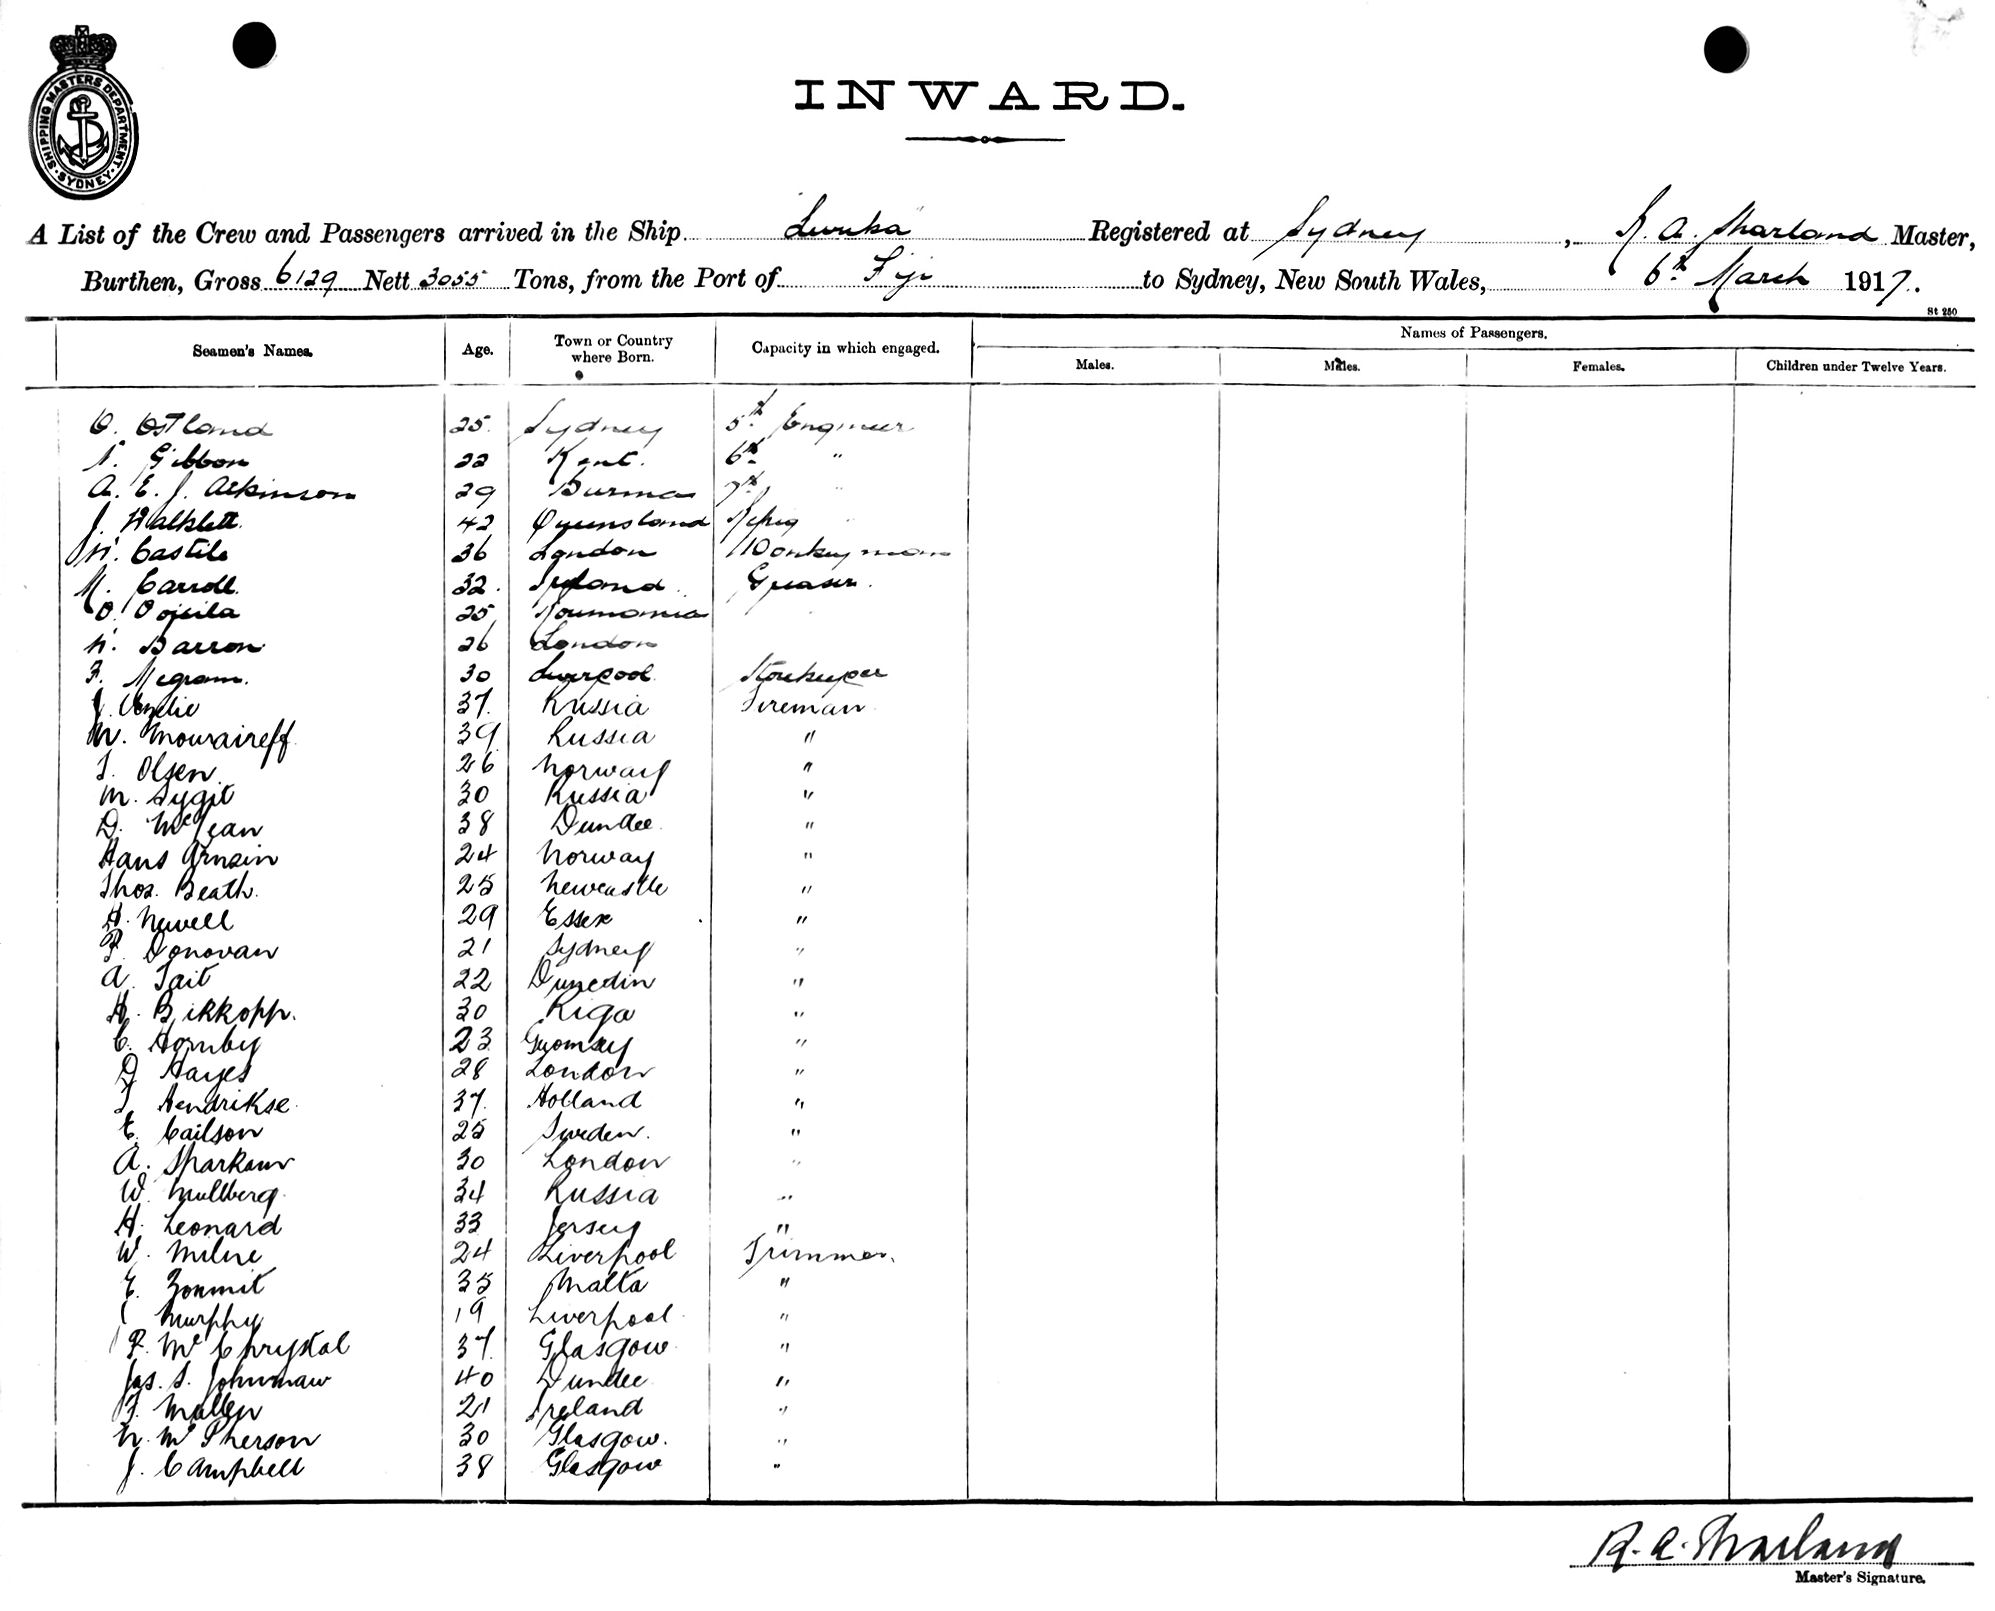 SHIPPING MASTERS DEPARTMENT
SYDNEY
INWARD.
A List of the Crew and Passengers arrived in the Ship "Levuka" Registered at Sydney, R. A. Sharland Master,
Burthen, Gross 6129 Nett 3055 Tons, from the Port of Fiji to Sydney, New South Wales, 6th March 1917.
St 250
Seamen's Names. Age. Town or Country where Born. Capacity in which engaged. Names of Passengers.
Males. Males. Females. Children under Twelve Years.
O. Ostland 25 Sydney 5th Engineer
Gibbon 22 Kent. 6th "
A. E. J. Atkinson 29 Burma 7th "
J. Walklett 42 Queensland Refrig "
W. Castile 36 London Donkeyman
M. Carroll 32 Ireland Greaser
25 Roumania
Barron 26 London
F. Megram. 30 Liverpool Storekeeper
J. 37 Russia Fireman
M. Mouraireff 39 Russia "
T. Olsen 26 Norway "
M. Sygit 30 Russia "
D. McJean 38 Dundee "
Hans 24 Norway "
Thos. Beath. 25 Newcastle "
H. Newell 29 Essex "
P. Donovan 21 Sydney "
A. Tait 22 Dunedin "
H. Bikkopp. 30 Riga "
C. Hornby 23 "
D Hayes 28 London "
T. Hendrikse 37 Holland "
E. Cailson 25 Sweden. "
A. 30 London "
W. Mullberg 34 Russia "
H. Leonard 33 Jersey "
W. Milne 24 Liverpool Trimmer.
E. Zommit 35 Malta "
Murphy 19 Liverpool "
P. McChrystal 37 Glasgow "
Jas. S. Johnman 40 Dundee "
J. Mallen 21 Ireland "
N. McPherson 30 Glasgow. "
J. Campbell 38 Glasgow "
R. A. Sharland
Master's Signature.